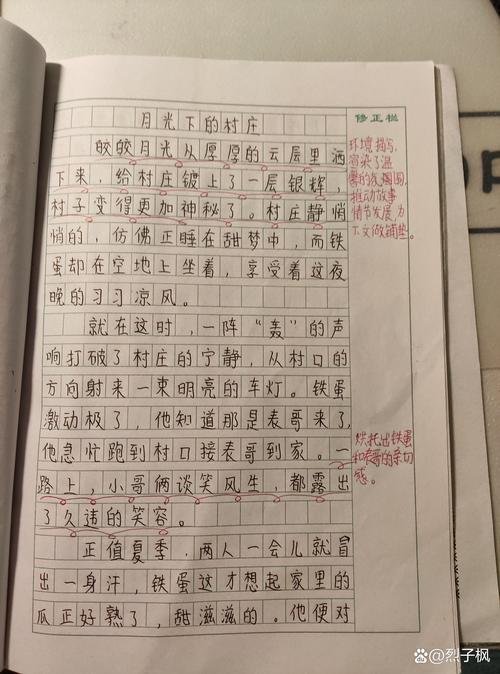 月光下的村庄
修正栏
皎皎月光从厚厚的云层里洒
下来，给村庄镀上了一层银辉，
村子变得更加神秘了。村庄静悄
悄的，仿佛正睡在甜梦中，而铁
蛋却在空地上坐着，享受着这夜
晚的习习凉风。
环境描写，
渲染了温
馨的氛围，
推动故事
情节发展，为
下文做铺垫。
就在这时，一阵“轰”的声
响打破了村庄的宁静，从村口的
方向射来一束明亮的车灯。铁蛋
激动极了，他知道那是表哥来了，
他急忙跑到村口接表哥到家。一
路上，小哥俩谈笑风生，都露出
了久违的笑容。
烘托出铁蛋
和表哥的亲切
感。
正值夏季，两人一会儿就冒
出一身汗，铁蛋这才想起家里的
瓜正好熟了，甜滋滋的。他便对
@烈子枫